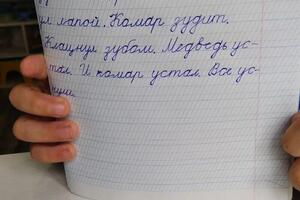 ул лапой. Комар зудит.
Клацнул зубом. Медведь ус-
тал. И комар устал. Все ус-
нули.